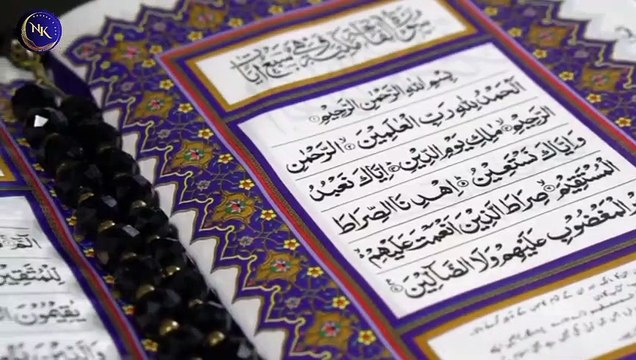 NK
سورة الفاتحة مكية وهي سبع آيات
بِسْمِ اللهِ الرَّحْمٰنِ الرَّحِيْمِ
اَلْحَمْدُ لِلّٰهِ رَبِّ الْعٰلَمِيْنَ الرَّحْمٰنِ
الرَّحِيْمِ مٰلِكِ يَوْمِ الدِّيْنِ اِيَّاكَ نَعْبُدُ
وَاِيَّاكَ نَسْتَعِيْنُ اِهْدِنَا الصِّرَاطَ
الْمُسْتَقِيْمَ صِرَاطَ الَّذِيْنَ اَنْعَمْتَ عَلَيْهِمْ
الْمَغْضُوْبِ عَلَيْهِمْ وَلَا الضَّآلِّيْنَ
لِلْمُتَّقِيْنَ
يُقِيْمُوْنَ
وَالَّذِيْنَ